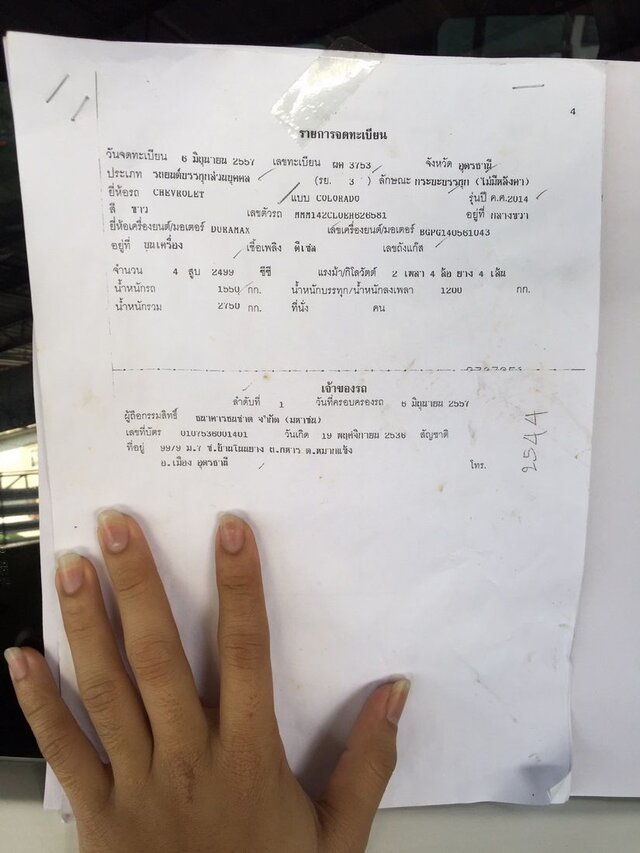 4
รายการจดทะเบียน
วันจดทะเบียน 6 มิถุนายน 2557 เลขทะเบียน ผค 3753 จังหวัด อุดรธานี
ประเภท รถยนต์บรรทุกส่วนบุคคล (รย. 3 ) ลักษณะ กระบะบรรทุก (ไม่มีหลังคา)
ยี่ห้อรถ CHEVROLET แบบ COLORADO รุ่นปี ค.ศ.2014
สี ขาว เลขตัวรถ MMM142CL0EH626581 อยู่ที่ กลางขวา
ยี่ห้อเครื่องยนต์/มอเตอร์ DURAMAX เลขเครื่องยนต์/มอเตอร์ BGPG140561043
อยู่ที่ บนเครื่อง เชื้อเพลิง ดีเซล เลขถังแก๊ส
จำนวน 4 สูบ 2499 ซีซี แรงม้า/กิโลวัตต์ 2 เพลา 4 ล้อ ยาง 4 เส้น
น้ำหนักรถ 1550 กก. น้ำหนักบรรทุก/น้ำหนักลงเพลา 1200 กก.
น้ำหนักรวม 2750 กก. ที่นั่ง คน
เจ้าของรถ
ลำดับที่ 1 วันที่ครอบครองรถ 6 มิถุนายน 2557
ผู้ถือกรรมสิทธิ์ ธนาคารธนชาต จำกัด (มหาชน)
เลขที่บัตร 0107536001401 วันเกิด 19 พฤศจิกายน 2536 สัญชาติ
ที่อยู่ 99/9 ม.7 ซ.บ้านโนนยาง ถ.ทหาร ต.หมากแข้ง
อ.เมือง อุดรธานี โทร.
2544